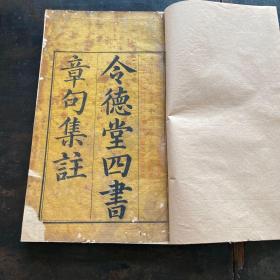 令德堂四書
章句集註